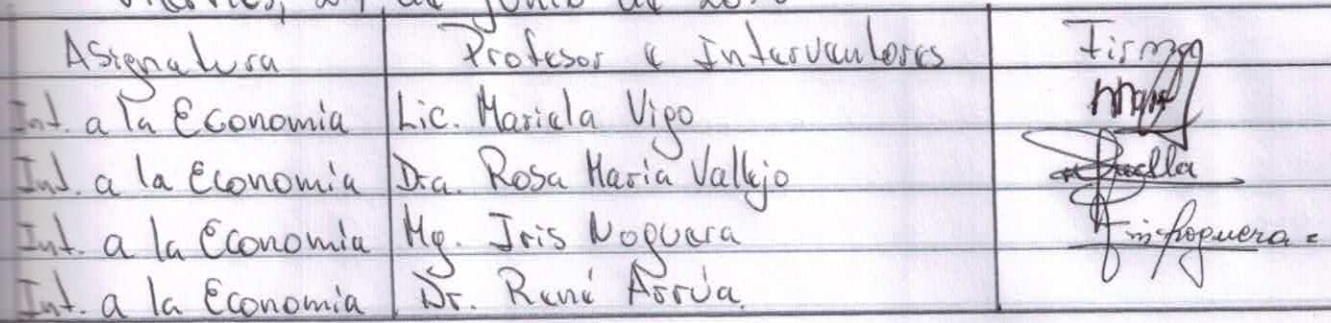 de Junio de
Asignatura Profesor e Interventores Firma
Int. a la Economía Lic. Mariela Vigo
Int. a la Economía Dra. Rosa María Vallejo
Int. a la Economía Mg. Iris Noguera
Int. a la Economía Dr. René Arrúa.